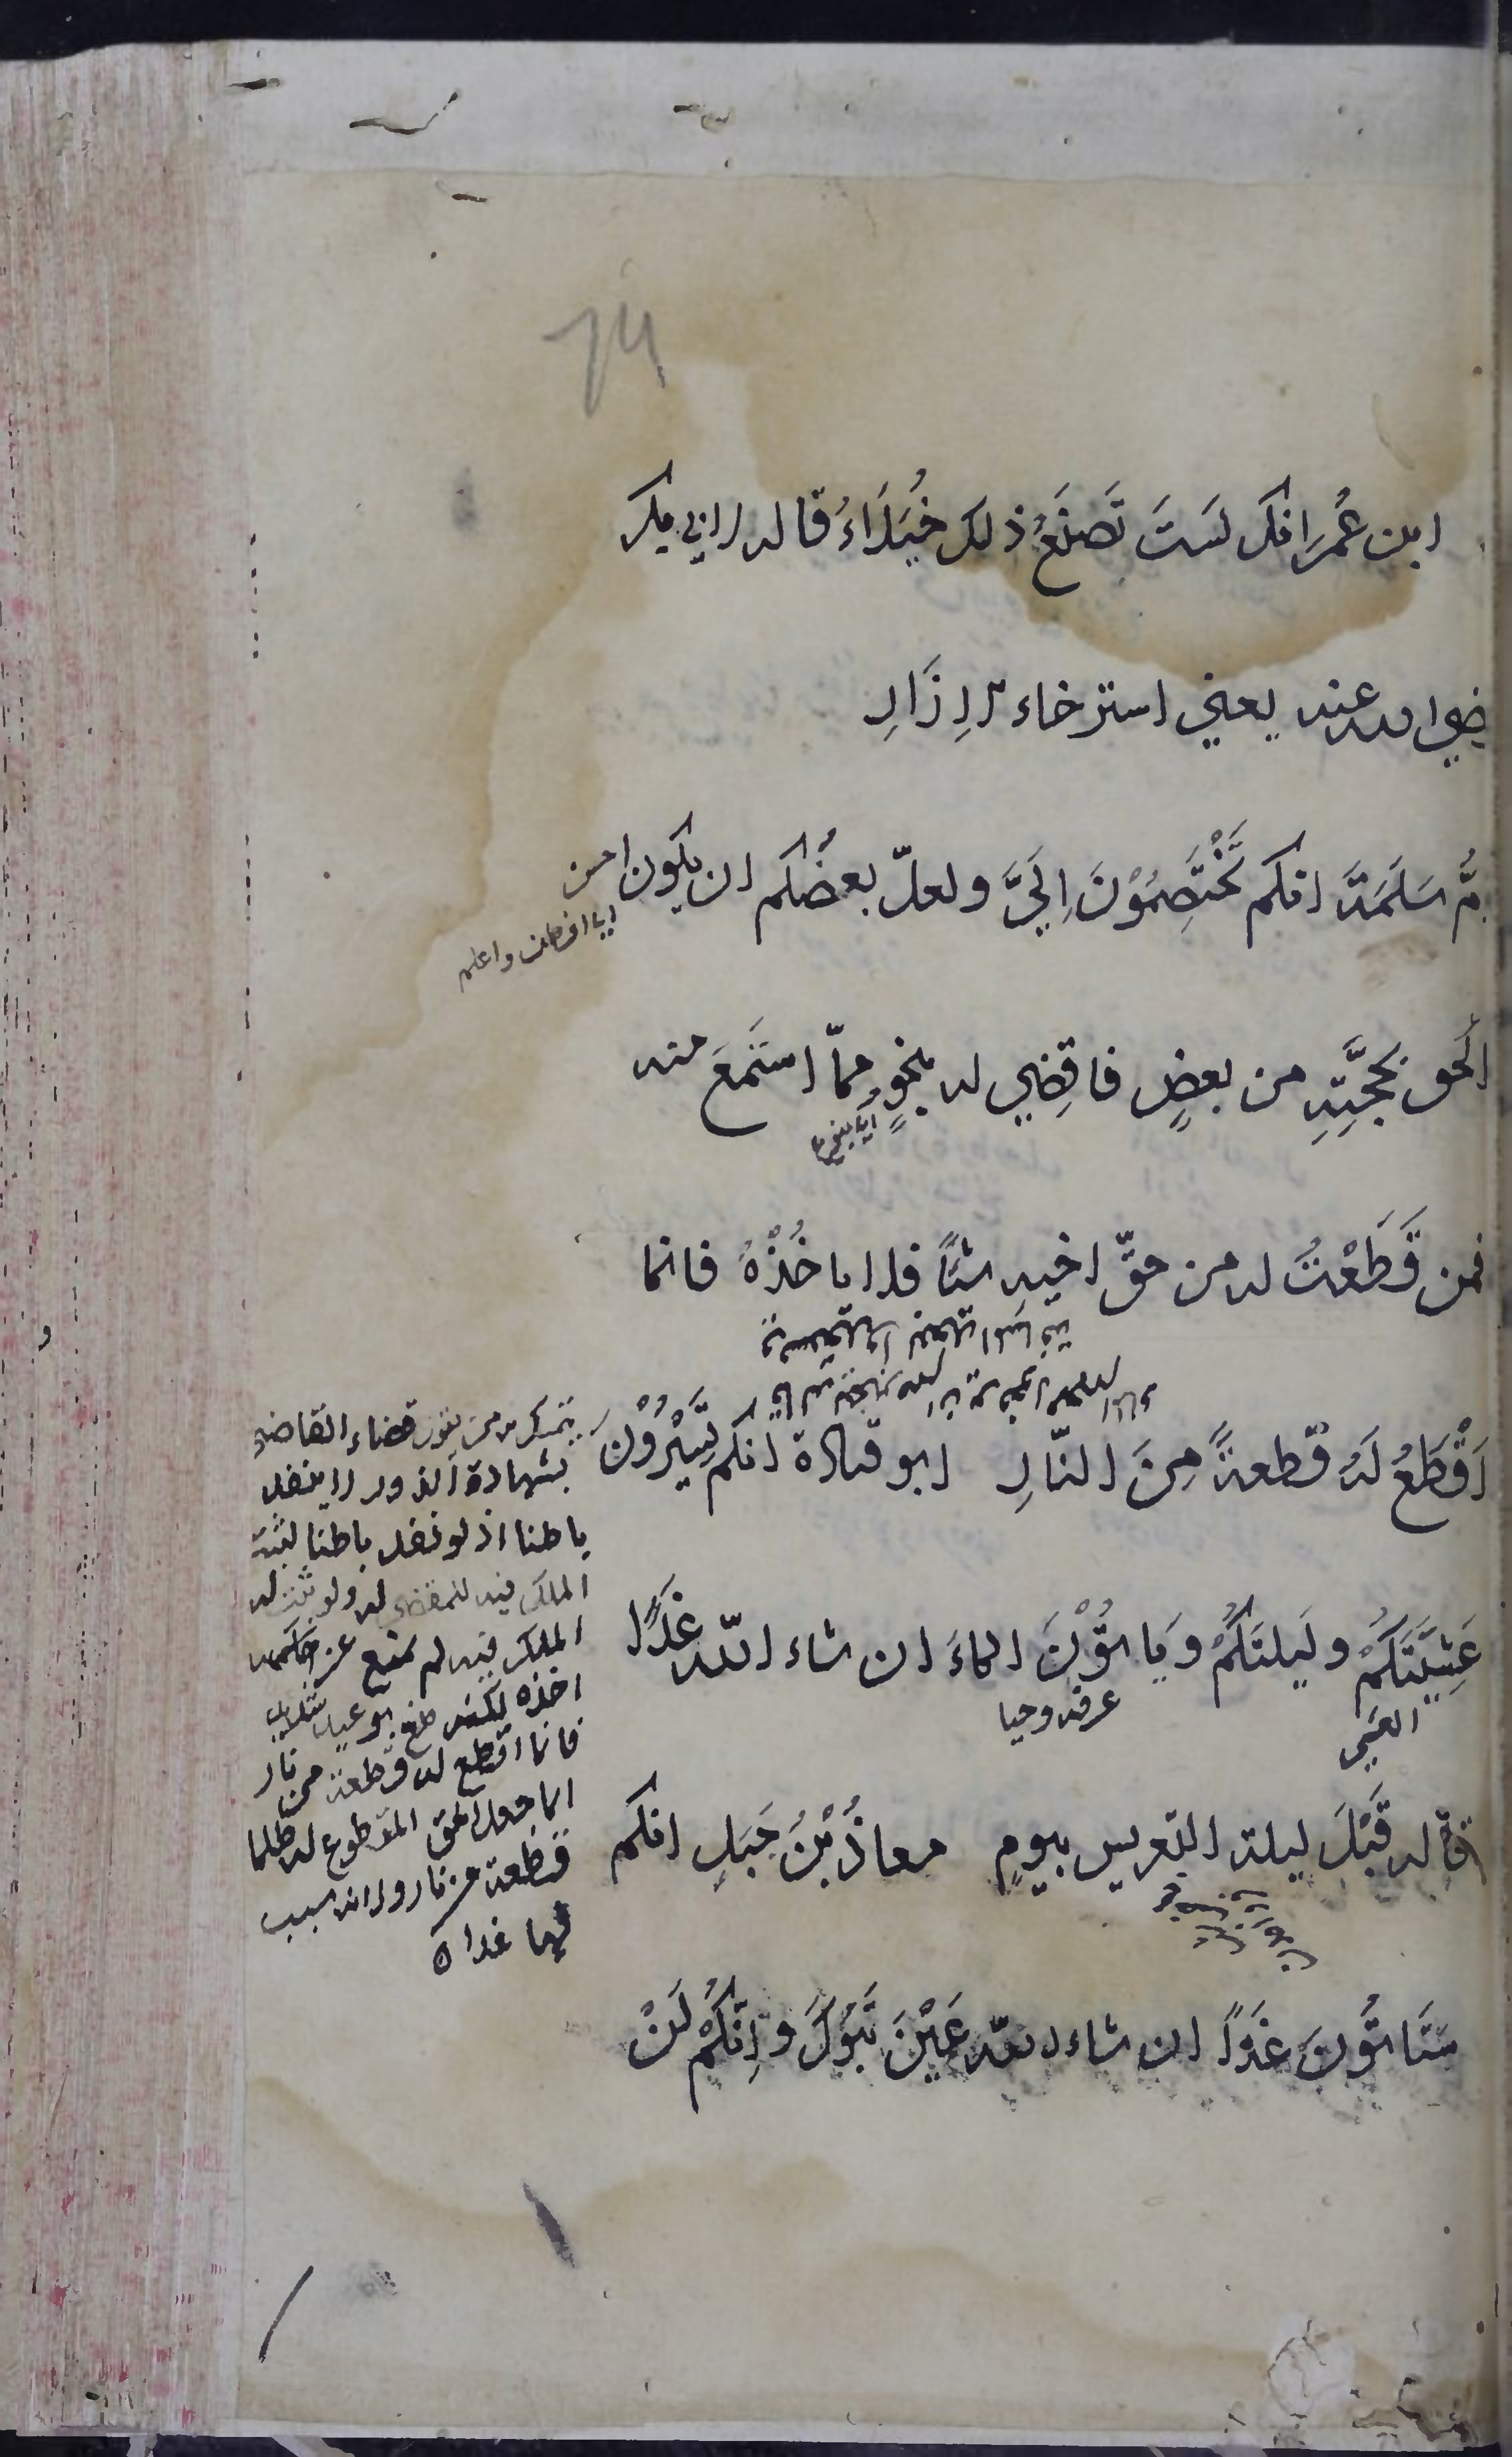 ابن عُمَرَ انكَ لَستَ تَصنَعُ ذلك خُيَلَاءَ قاله لابي بكر
ضي الله عنه يعني استرخاء الاِزَارِ
مُّ سَلَمَةَ انكم تَخْتَصِمُوْنَ اِلَيَّ ولعلّ بعضُكم ان يكون
اي افطن واعلم
الحن بحُجَّتِهِ من بعضٍ فاقضِي له بنحوٍ ممّا استَمَعَ منه
فمن قَطَعْتُ له من حقّ اخيه شئًا فلا ياخُذْهُ فانما
اَقْطَعُ لَهُ قطعةً مِنَ النّارِ ابو قتادة انكم تَسِيْرُوْنَ
عَشِيَّتَكُمْ ولَيلتَكُمْ وَتَاتُوْنَ الماءَ ان شاء اللّه غَدًا
العشي
عرفه وحيا
قاله قَبْلَ ليلة التعريس بيومٍ معاذُ بْنُ جَبَلٍ انكم
سَتَاتُوْنَ غَدًا ان شاء اللّه عَيْنَ تَبُوْكَ وَاِنَّكُمْ لَنْ
قضاء القاضي
بشهادة الزور لا ينفذ
باطنا اذ لو نفذ باطنا لثبت
الملك فيه للمقضي له ولو ثبت له
الملك فيه لم يمنع عن
اخذه لكنه
فانما اقطع له قطعة من نار
انما جعل الحق المقطوع له ظلما
قطعة من نار ولانه سبب
لها غدا ه